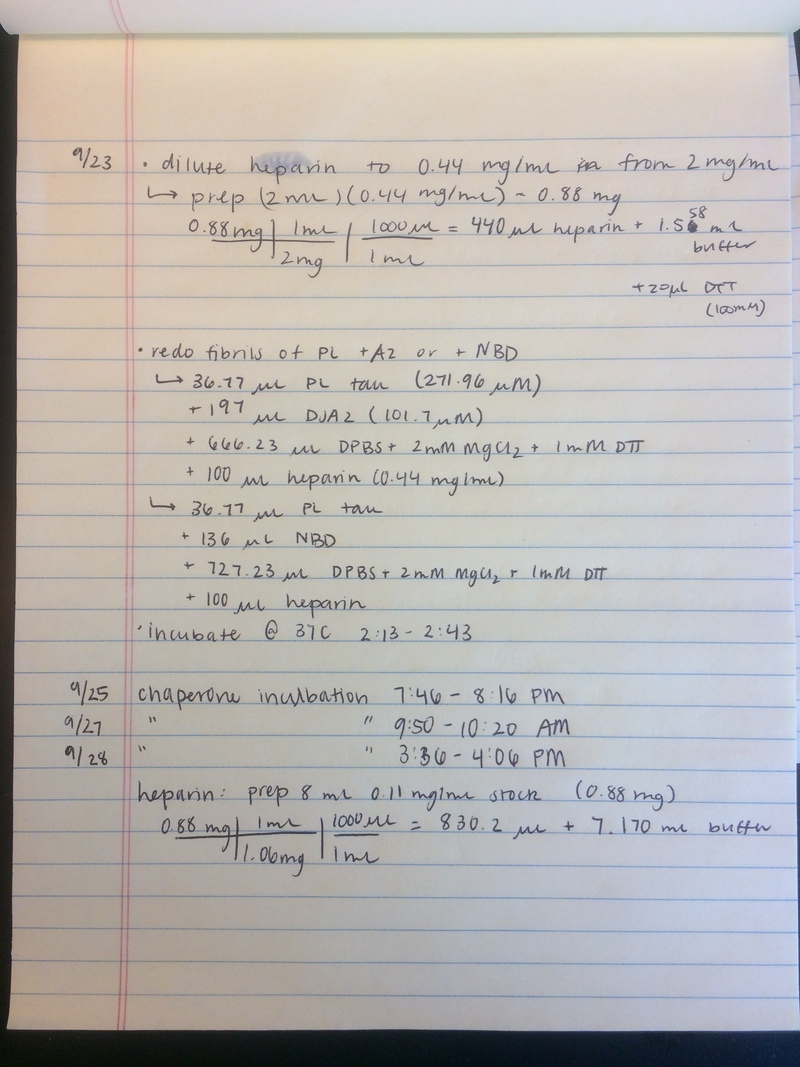 9/23 • dilute heparin to 0.44 mg/mL from 2 mg/mL
↳ prep (2 mL)(0.44 mg/mL) = 0.88 mg
0.88 mg | 1 mL | 1000 µL = 440 µL heparin + 1.558 mL
2 mg | 1 mL buffer
+20 µL DTT
(100mM)
• redo fibrils of PL +A2 or + NBD
↳ 36.77 µL PL tau (271.96 µM)
+ 197 µL DJA2 (101.7 µM)
+ 666.23 µL DPBS + 2mM MgCl2 + 1mM DTT
+ 100 µL heparin (0.44 mg/mL)
↳ 36.77 µL PL tau
+ 136 µL NBD
+ 727.23 µL DPBS + 2mM MgCl2 + 1mM DTT
+ 100 µL heparin
• incubate @ 37C 2:13 - 2:43
9/25 chaperone incubation 7:46 - 8:16 PM
9/27 " " 9:50 - 10:20 AM
9/28 " " 3:36 - 4:06 PM
heparin: prep 8 mL 0.11 mg/mL stock (0.88 mg)
0.88 mg | 1 mL | 1000 µL = 830.2 µL + 7.170 mL buffer
1.06 mg | 1 mL